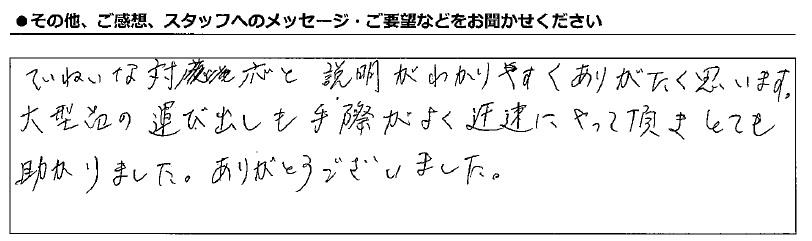 ●その他、ご感想、スタッフへのメッセージ・ご要望などをお聞かせください
ていねいな対応と 説明がわかりやすくありがたく思います。
大型品の運び出しも手際がよく迅速にやって頂きとても
助かりました。ありがとうございました。